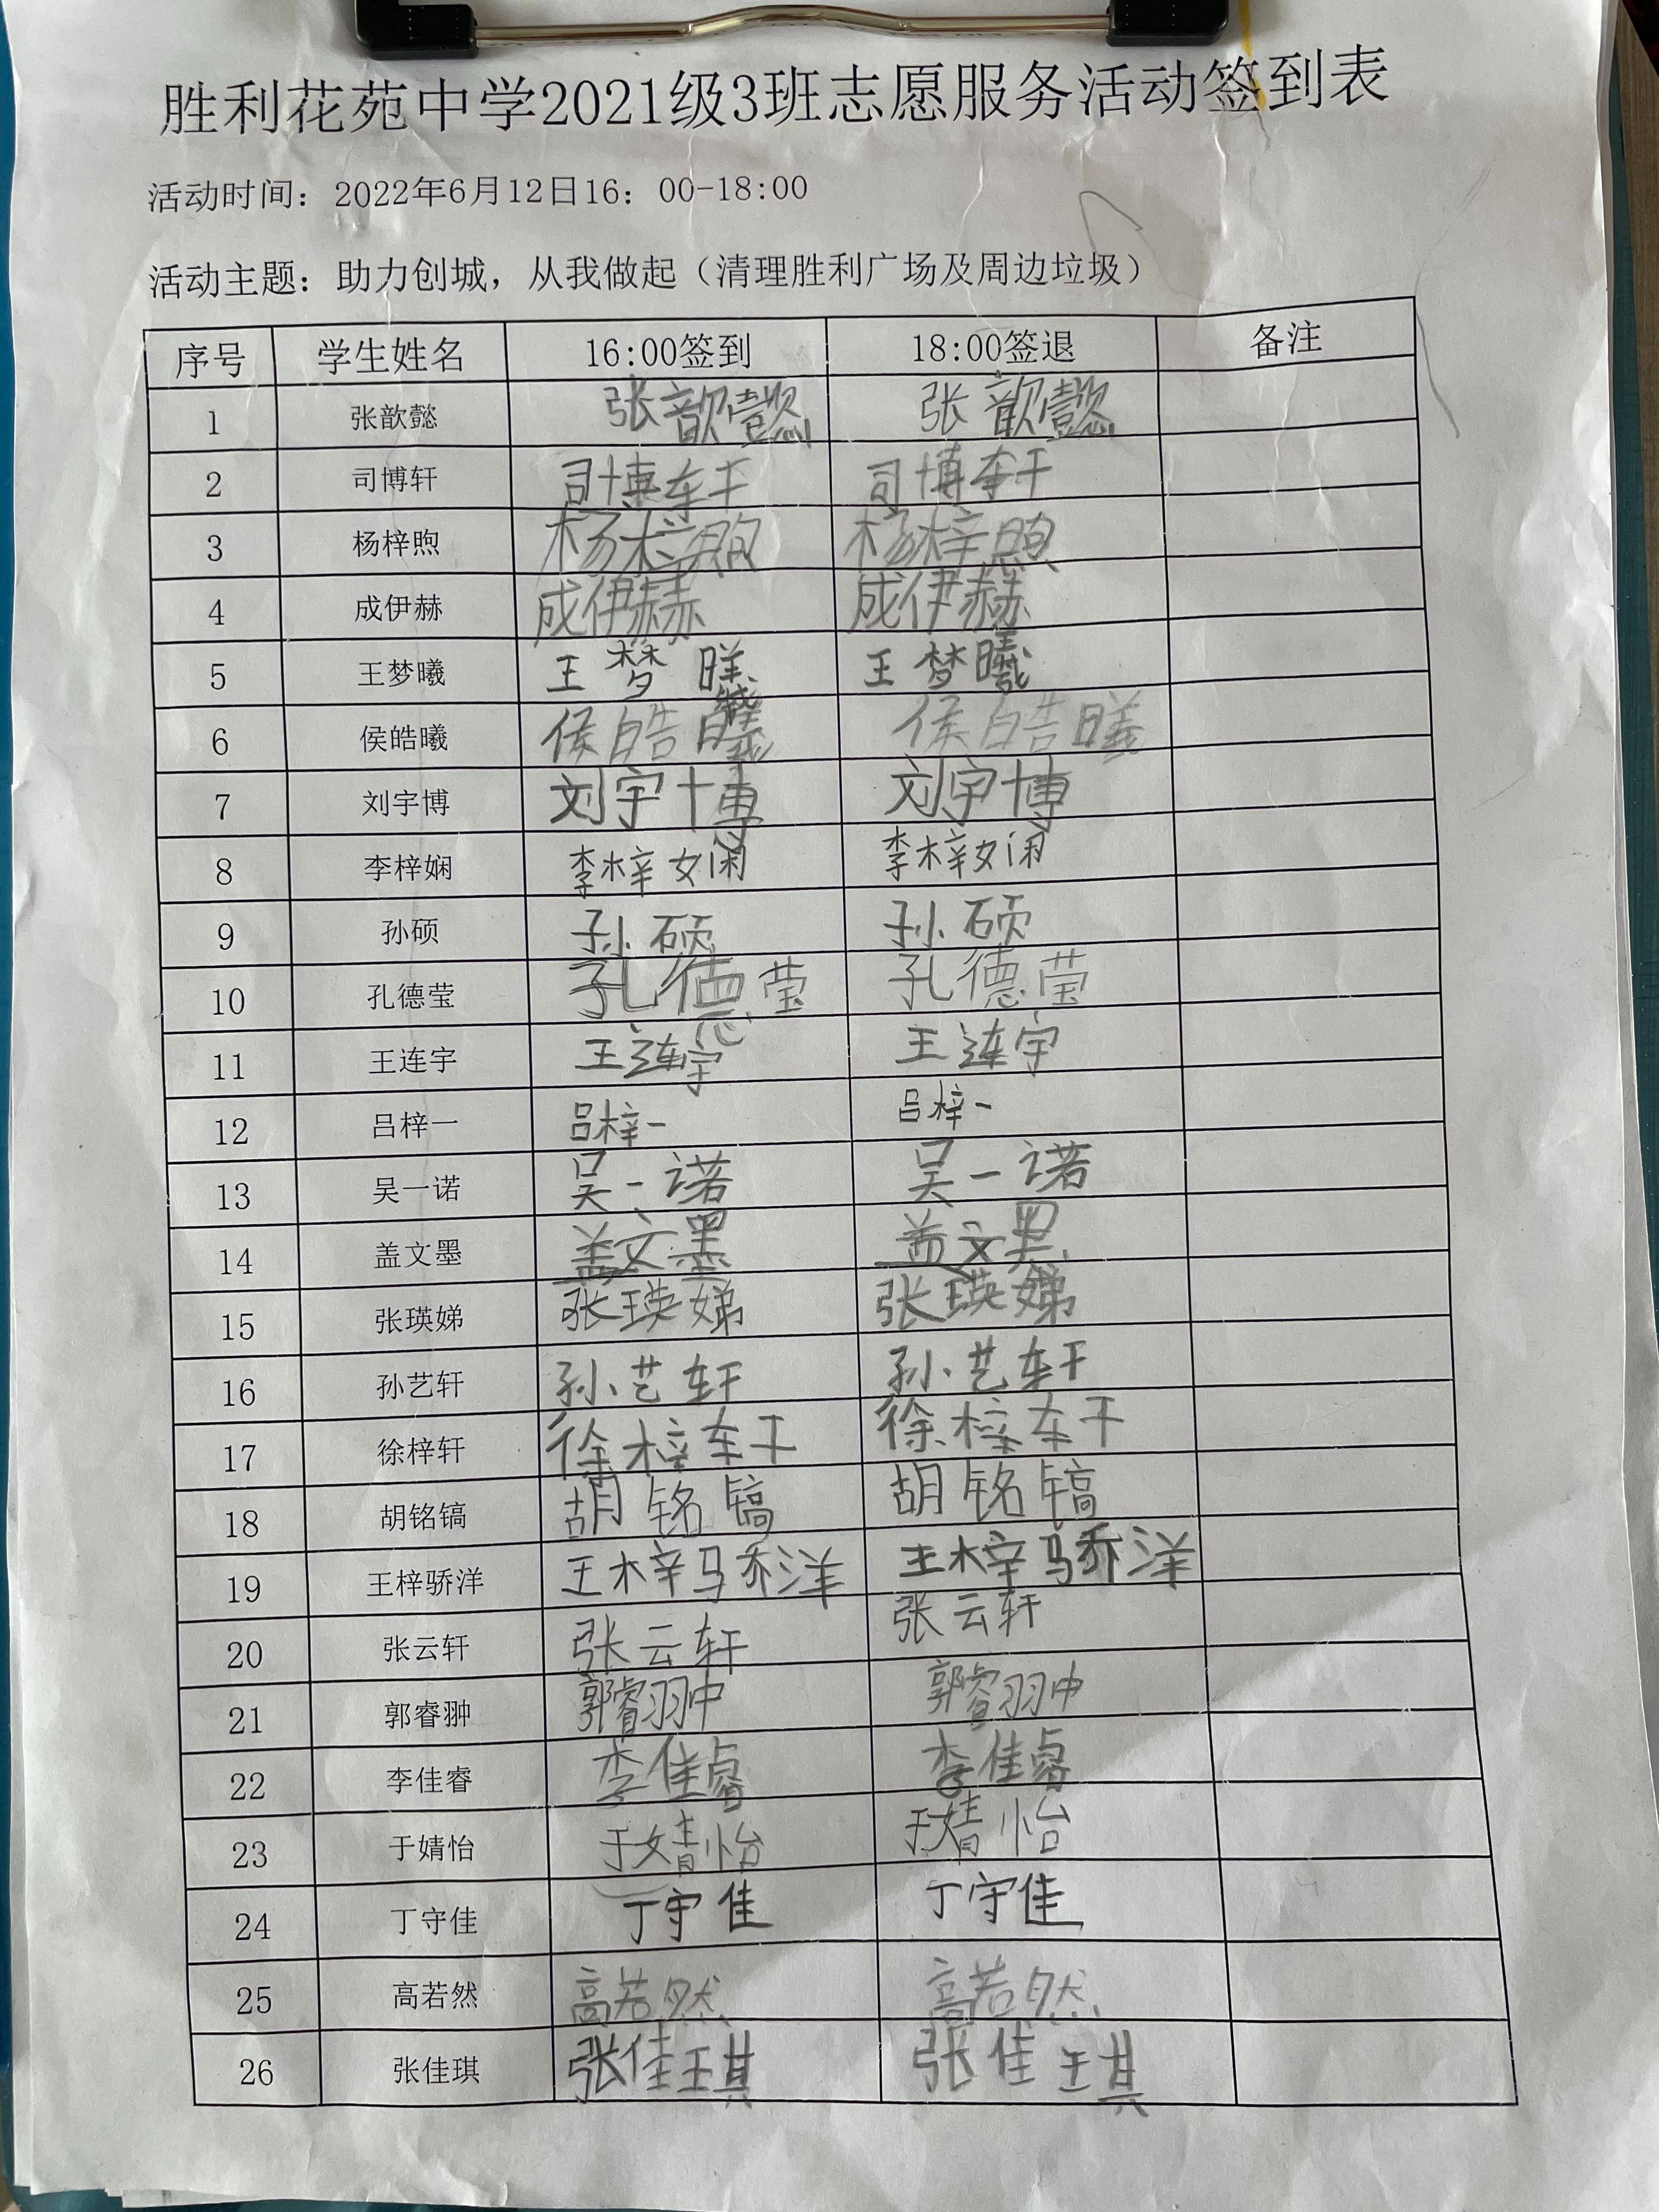 胜利花苑中学2021级3班志愿服务活动签到表
活动时间：2022年6月12日16：00-18:00
活动主题：助力创城，从我做起（清理胜利广场及周边垃圾）
序号 学生姓名 16:00签到 18:00签退 备注
1 张歆懿 张歆懿 张歆懿
2 司博轩 司博轩 司博轩
3 杨梓煦 杨梓煦 杨梓煦
4 成伊赫 成伊赫 成伊赫
5 王梦曦 王梦曦 王梦曦
6 侯皓曦 侯皓曦 侯皓曦
7 刘宇博 刘宇博 刘宇博
8 李梓娴 李梓娴 李梓娴
9 孙硕 孙硕 孙硕
10 孔德莹 孔德莹 孔德莹
11 王连宇 王连宇 王连宇
12 吕梓一 吕梓一 吕梓一
13 吴一诺 吴一诺 吴一诺
14 盖文墨 盖文墨 盖文墨
15 张瑛娣 张瑛娣 张瑛娣
16 孙艺轩 孙艺轩 孙艺轩
17 徐梓轩 徐梓轩 徐梓轩
18 胡铭镐 胡铭镐 胡铭镐
19 王梓骄洋 王梓骄洋 王梓骄洋
20 张云轩 张云轩 张云轩
21 郭睿翀 郭睿翀 郭睿翀
22 李佳睿 李佳睿 李佳睿
23 于婧怡 于婧怡 于婧怡
24 丁守佳 丁守佳 丁守佳
25 高若然 高若然 高若然
26 张佳琪 张佳琪 张佳琪